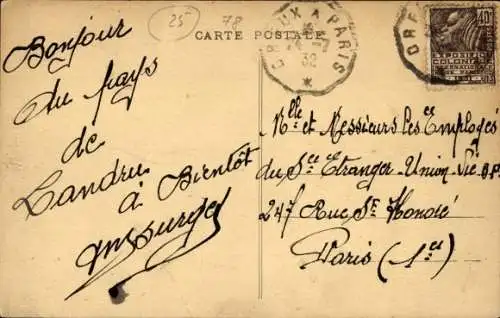 25
78
CARTE POSTALE
DREUX A PARIS
DRE
40c
EXPOSITION
COLONIALE
INTERNATIONALE
Bonjour
du pays
de
Landru
à Bientôt
Mlle et Messieurs les Employés
du Sce Etranger-Union-Vie
247 Rue St Honoré
Paris (1er)